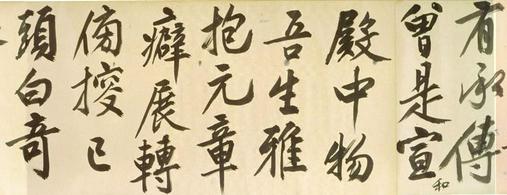 有承傳
曾是宣和
殿中物
吾生雅
抱元章
癖展轉
傍搜已
頭白奇